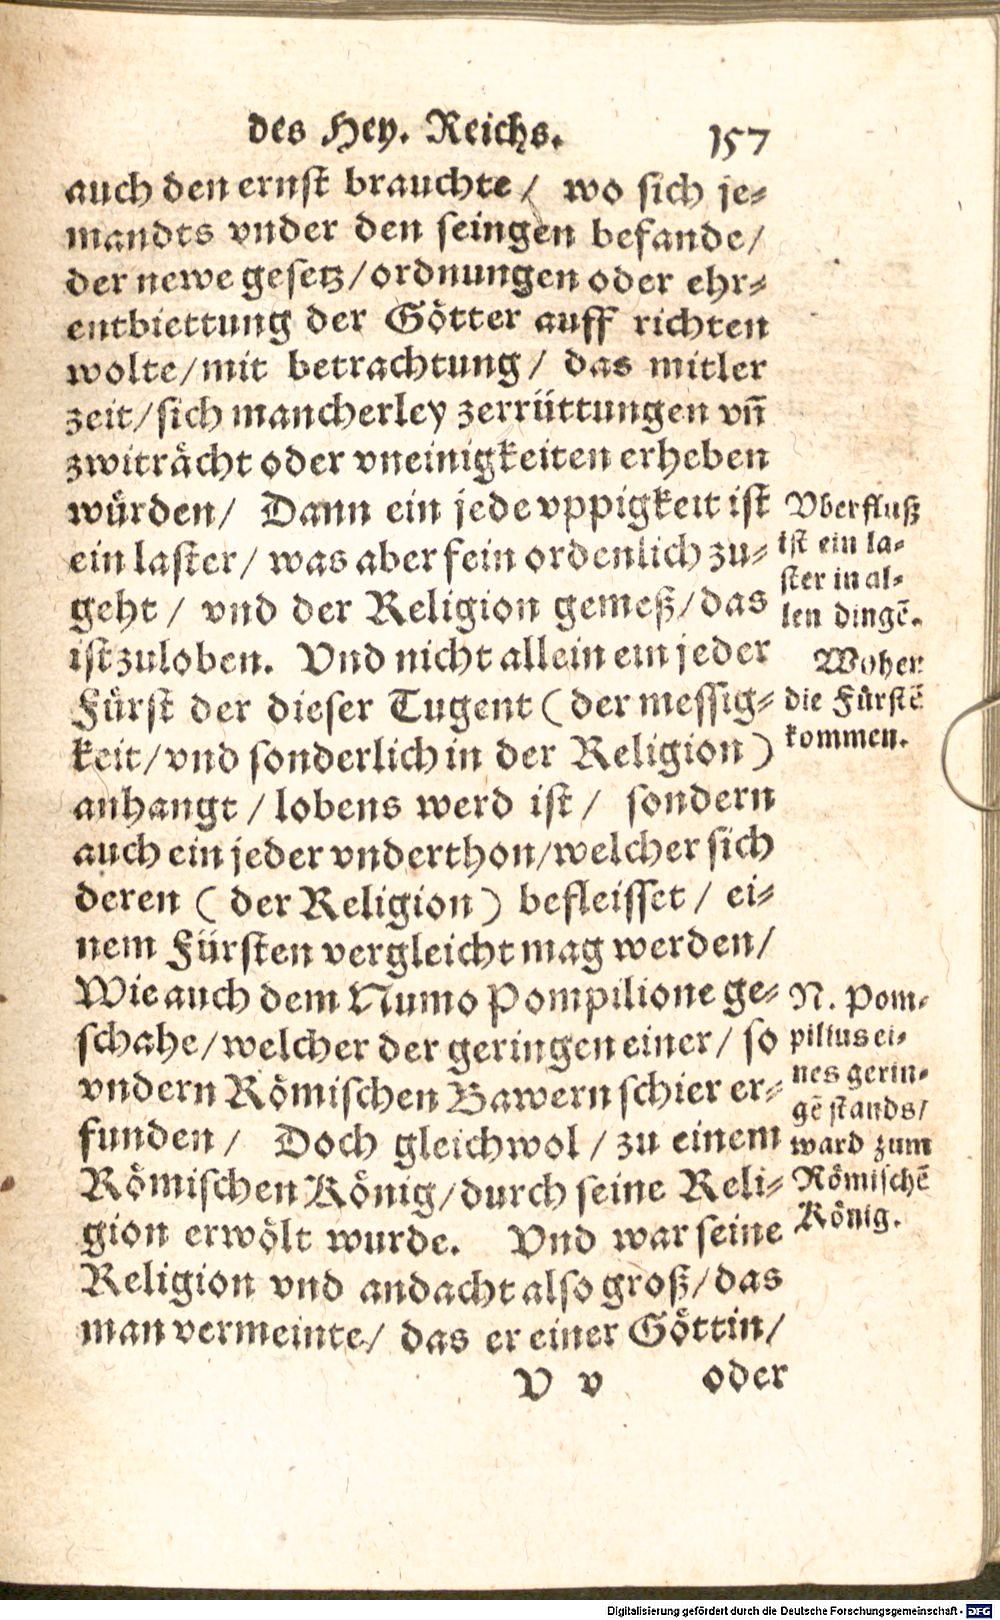 des Hey. Reichs. 157
auch den ernst brauchte / wo sich je-
mandts vnder den seingen befande/
der newe gesetz/ordnungen oder ehr-
entbiettung der Götter auff richten
wolte/mit betrachtung/ das mitler
zeit/sich mancherley zerrüttungen vñ
zwitråcht oder vneinigkeiten erheben
würden/ Dann ein jede vppigkeit ist
ein laster/ was aber fein ordenlich zu-
geht / vnd der Religion gemeß/das
ist zuloben. Vnd nicht allein ein jeder
Fürst der dieser Tugent (der messig-
keit/vnd sonderlich in der Religion)
anhangt / lobens werd ist/ sondern
auch ein jeder vnderthon/welcher sich
deren ( der Religion ) befleisset / ei-
nem Fürsten vergleicht mag werden/
Wie auch dem Numo Pompilione ge-
schahe/welcher der geringen einer/ so
vndern Römischen Bawern schier er-
funden / Doch gleichwol / zu einem
Römischen König/durch seine Reli-
gion erwölt wurde. Vnd war seine
Religion vnd andacht also groß/das
man vermeinte/ das er einer Göttin/
V v oder
Vberfluß
ist ein la-
ster in al-
len dingẽ.
Woher
die Fürstẽ
kommen.
N. Pom-
pilius ei-
nes gerin-
gẽ stands/
ward zum
Römischẽ
König.
Digitalisierung gefördert durch die Deutsche Forschungsgemeinschaft - DFG